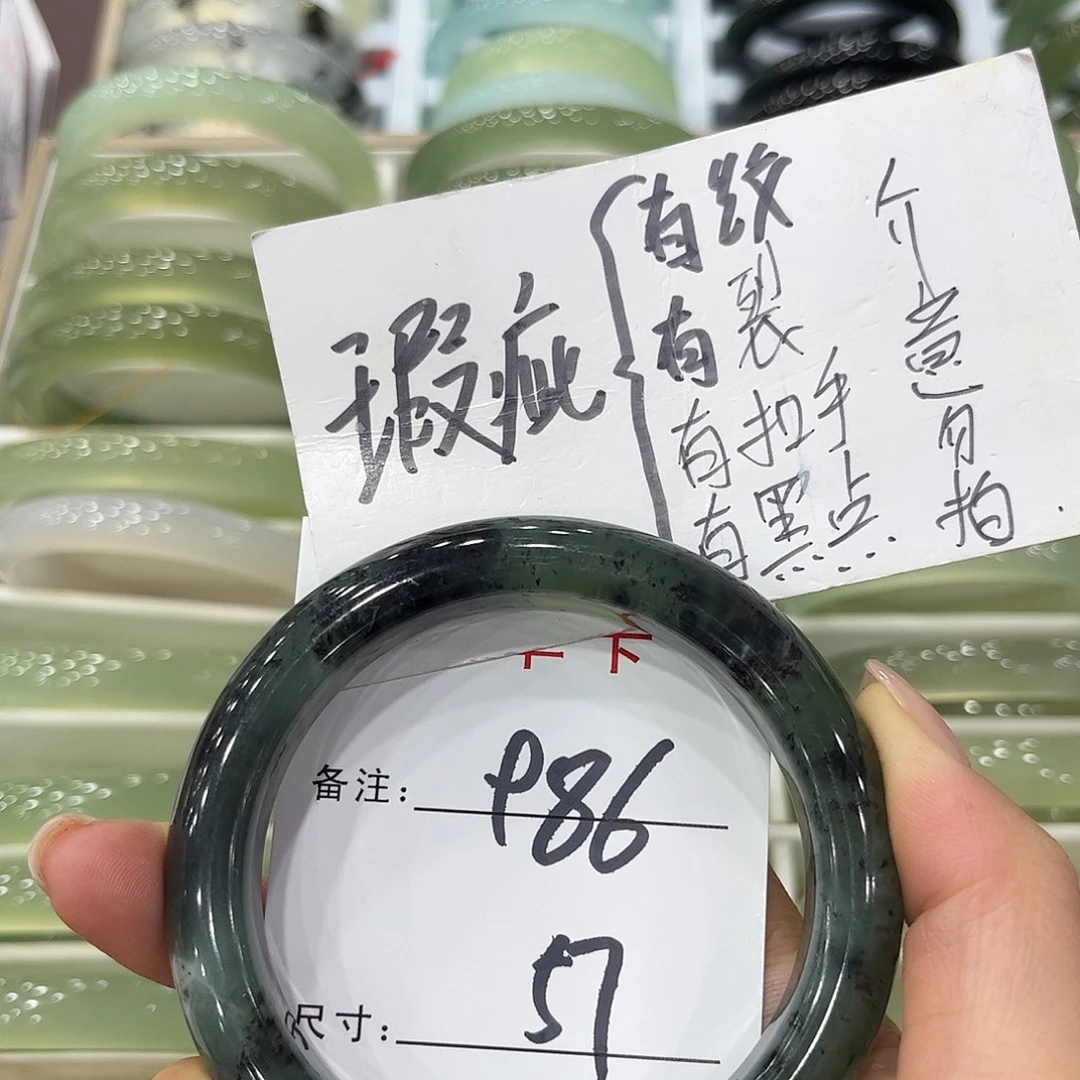 瑕疵
有纹
有裂
有扣手
有黑点...
介意勿拍.
备注: P86
尺寸: 57